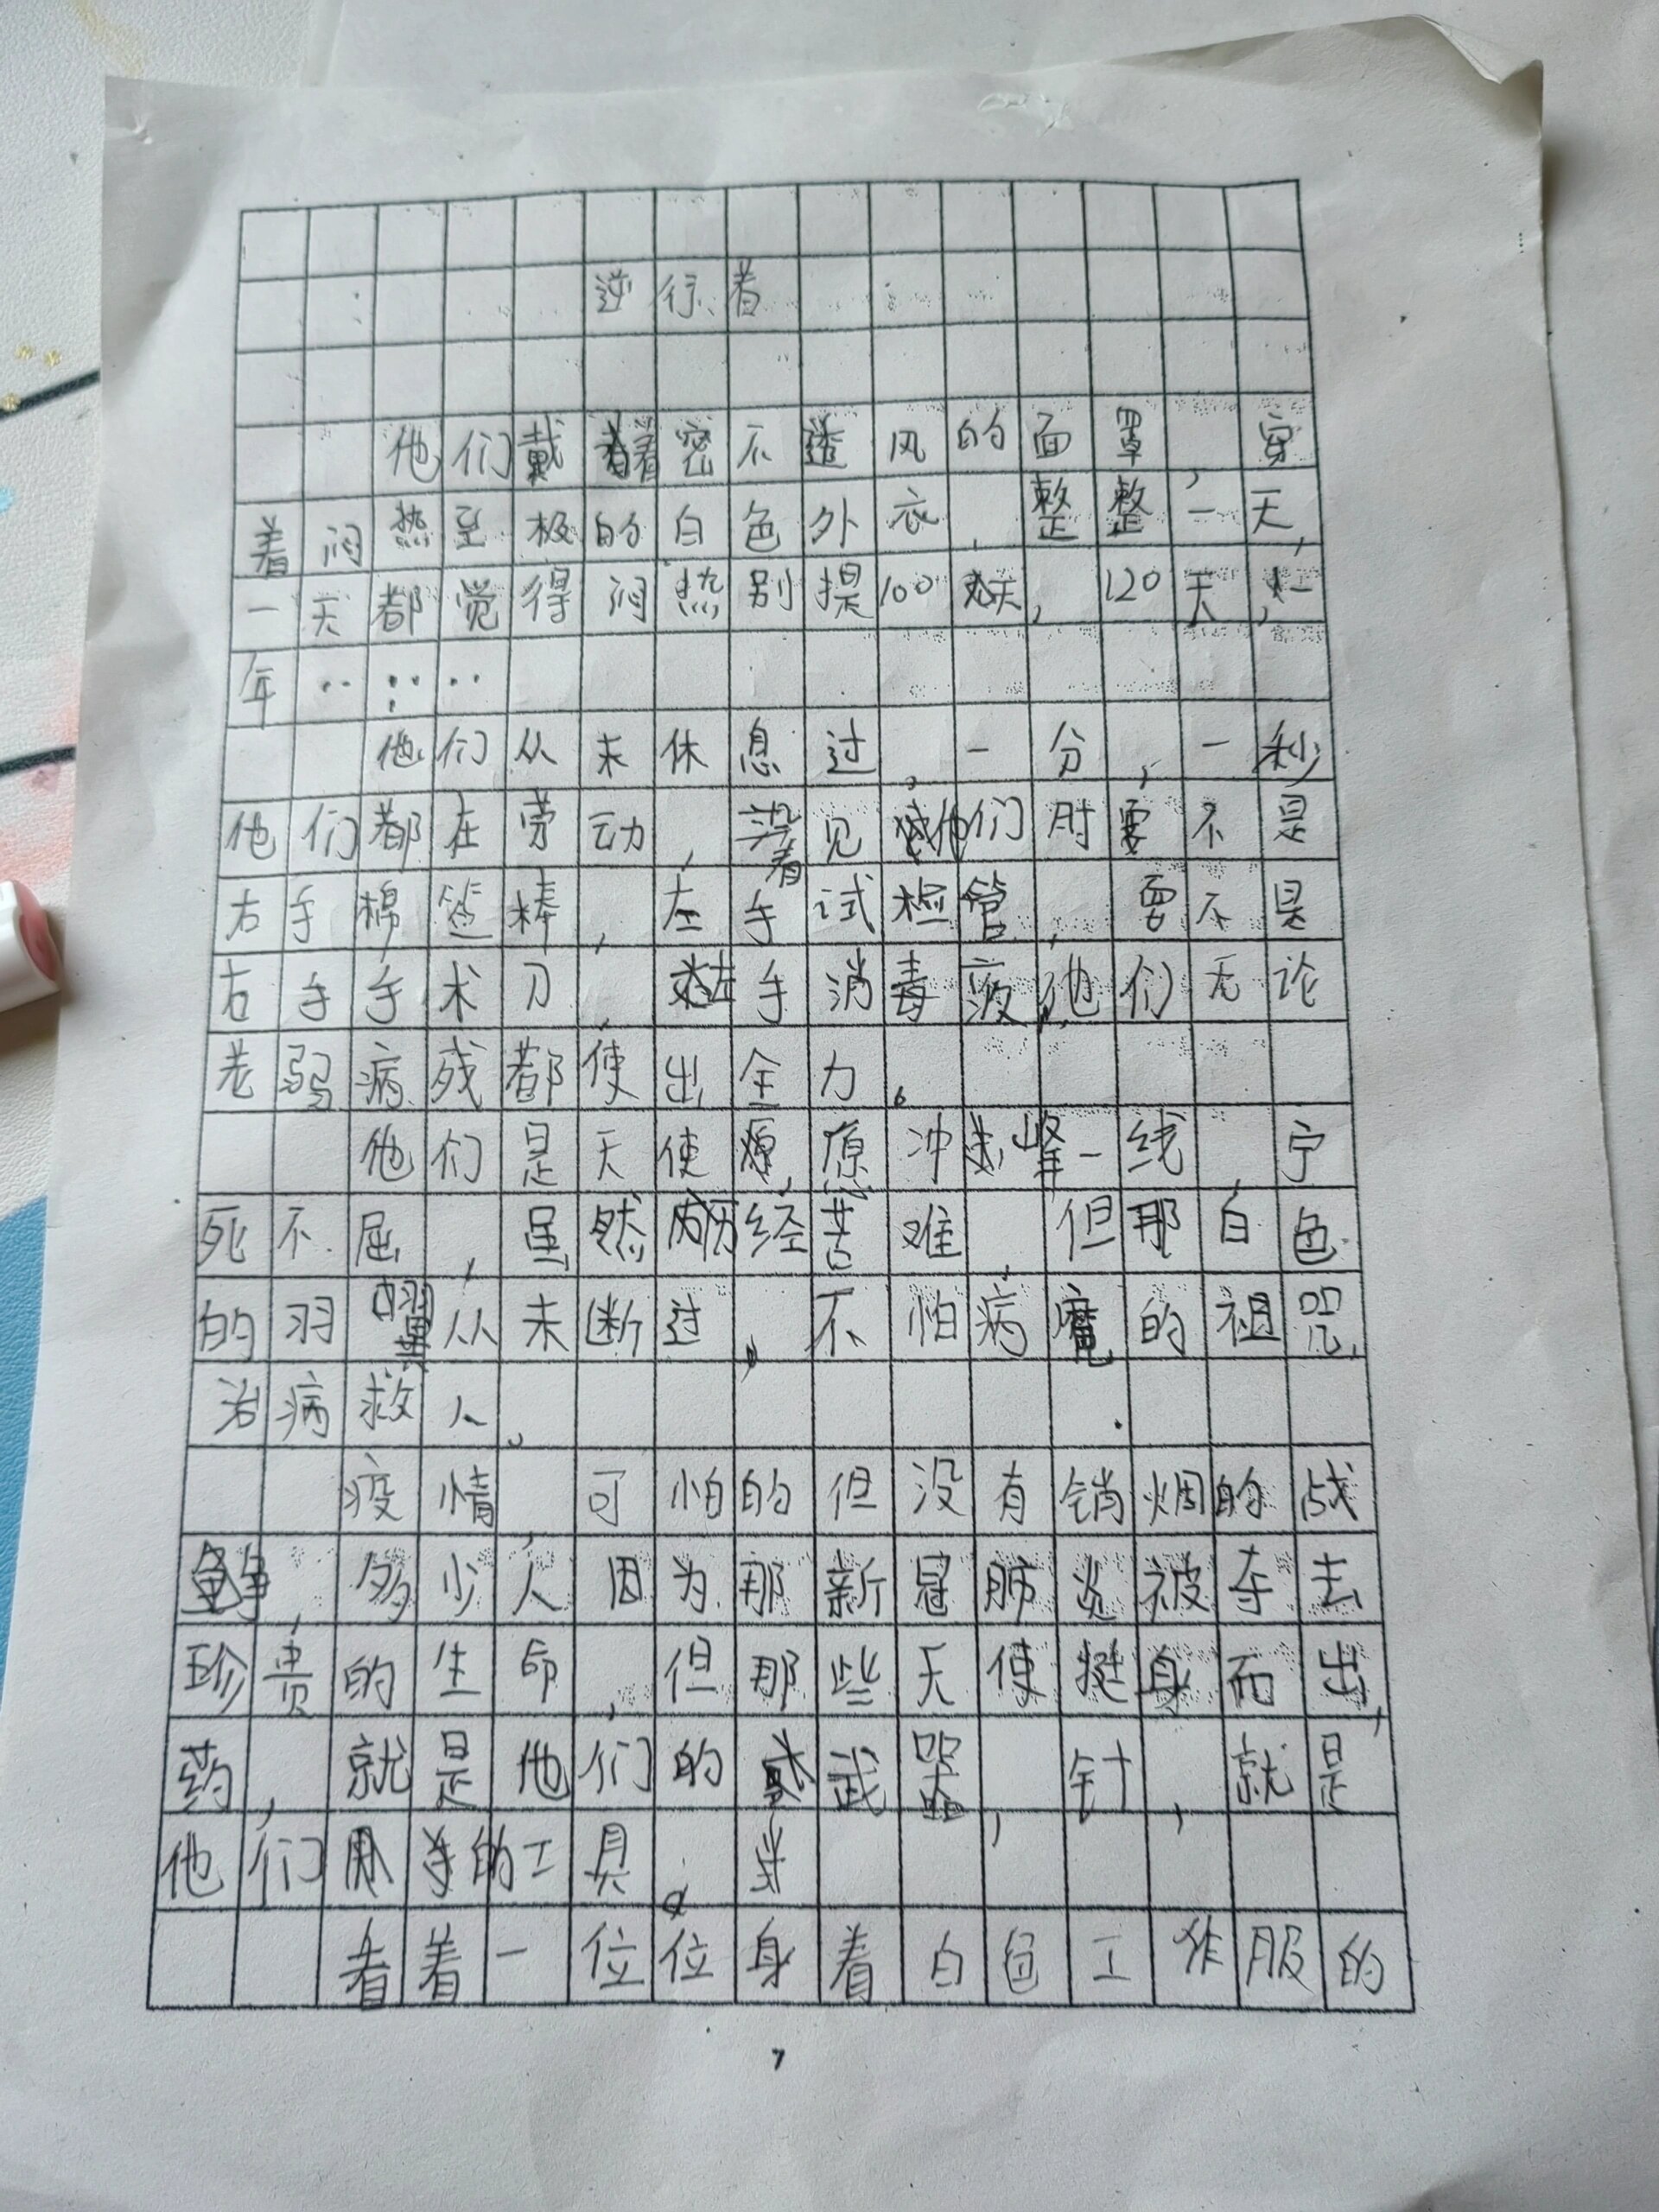 逆行者
他们戴着密不透风的面罩,穿
着闷热至极的白色外衣,整整一天,
一天都觉得闷热别提100天,120天,一
年……
他们从未休息过,一分,一秒
他们都在劳动,看见他们时要不是
右手棉签棒,左手试检管,要不是
右手手术刀,左手消毒液,他们无论
老弱病残都使出全力。
他们是天使,愿冲峰一线,宁
死不屈,虽然历经苦难,但那白色
的羽翼从未断过,不怕病魔的祖咒,
治病救人。
疫情,可怕的但没有销烟的战
争,多少人因为那新冠肺炎被夺去
珍贵的生命,但那些天使挺身而出,
药,就是他们的武器,针,就是
他们的工具。
看着一位位身着白色工作服的
7